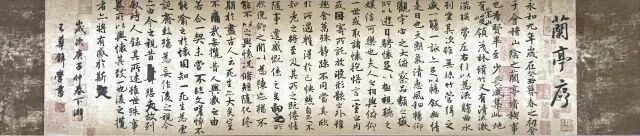 蘭亭序
永和九年歲在癸丑暮春之初會
于會稽山陰之蘭亭脩禊事
也群賢畢至少長咸集此地
有崇山峻領茂林脩竹又有清流激
湍暎帶左右引以為流觴曲水
列坐其次雖無絲竹管絃之
盛一觴一詠亦足以暢敘幽情
是日也天朗氣清惠風和暢仰
觀宇宙之大俯察品類之盛
所以遊目騁懷足以極視聽之
娛信可樂也夫人之相與俯仰
一世或取諸懷抱悟言一室之內
或因寄所託放浪形骸之外雖
趣舍萬殊靜躁不同當其欣
於所遇蹔得於己快然自足不
知老之將至及其所之既惓情
隨事遷感慨係之矣向之所
欣俛仰之間以為陳迹猶不
能不以之興懷況脩短隨化終
期於盡古人云死生亦大矣豈
不痛哉每攬昔人興感之由
若合一契未嘗不臨文嗟悼不
能喻之於懷固知一死生為虛
誕齊彭殤為妄作後之視今
亦由今之視昔悲夫故列
敘時人錄其所述雖世殊事
異所以興懷其致一也後之攬
者亦將有感於斯文
歲次庚子仲春下澣
書